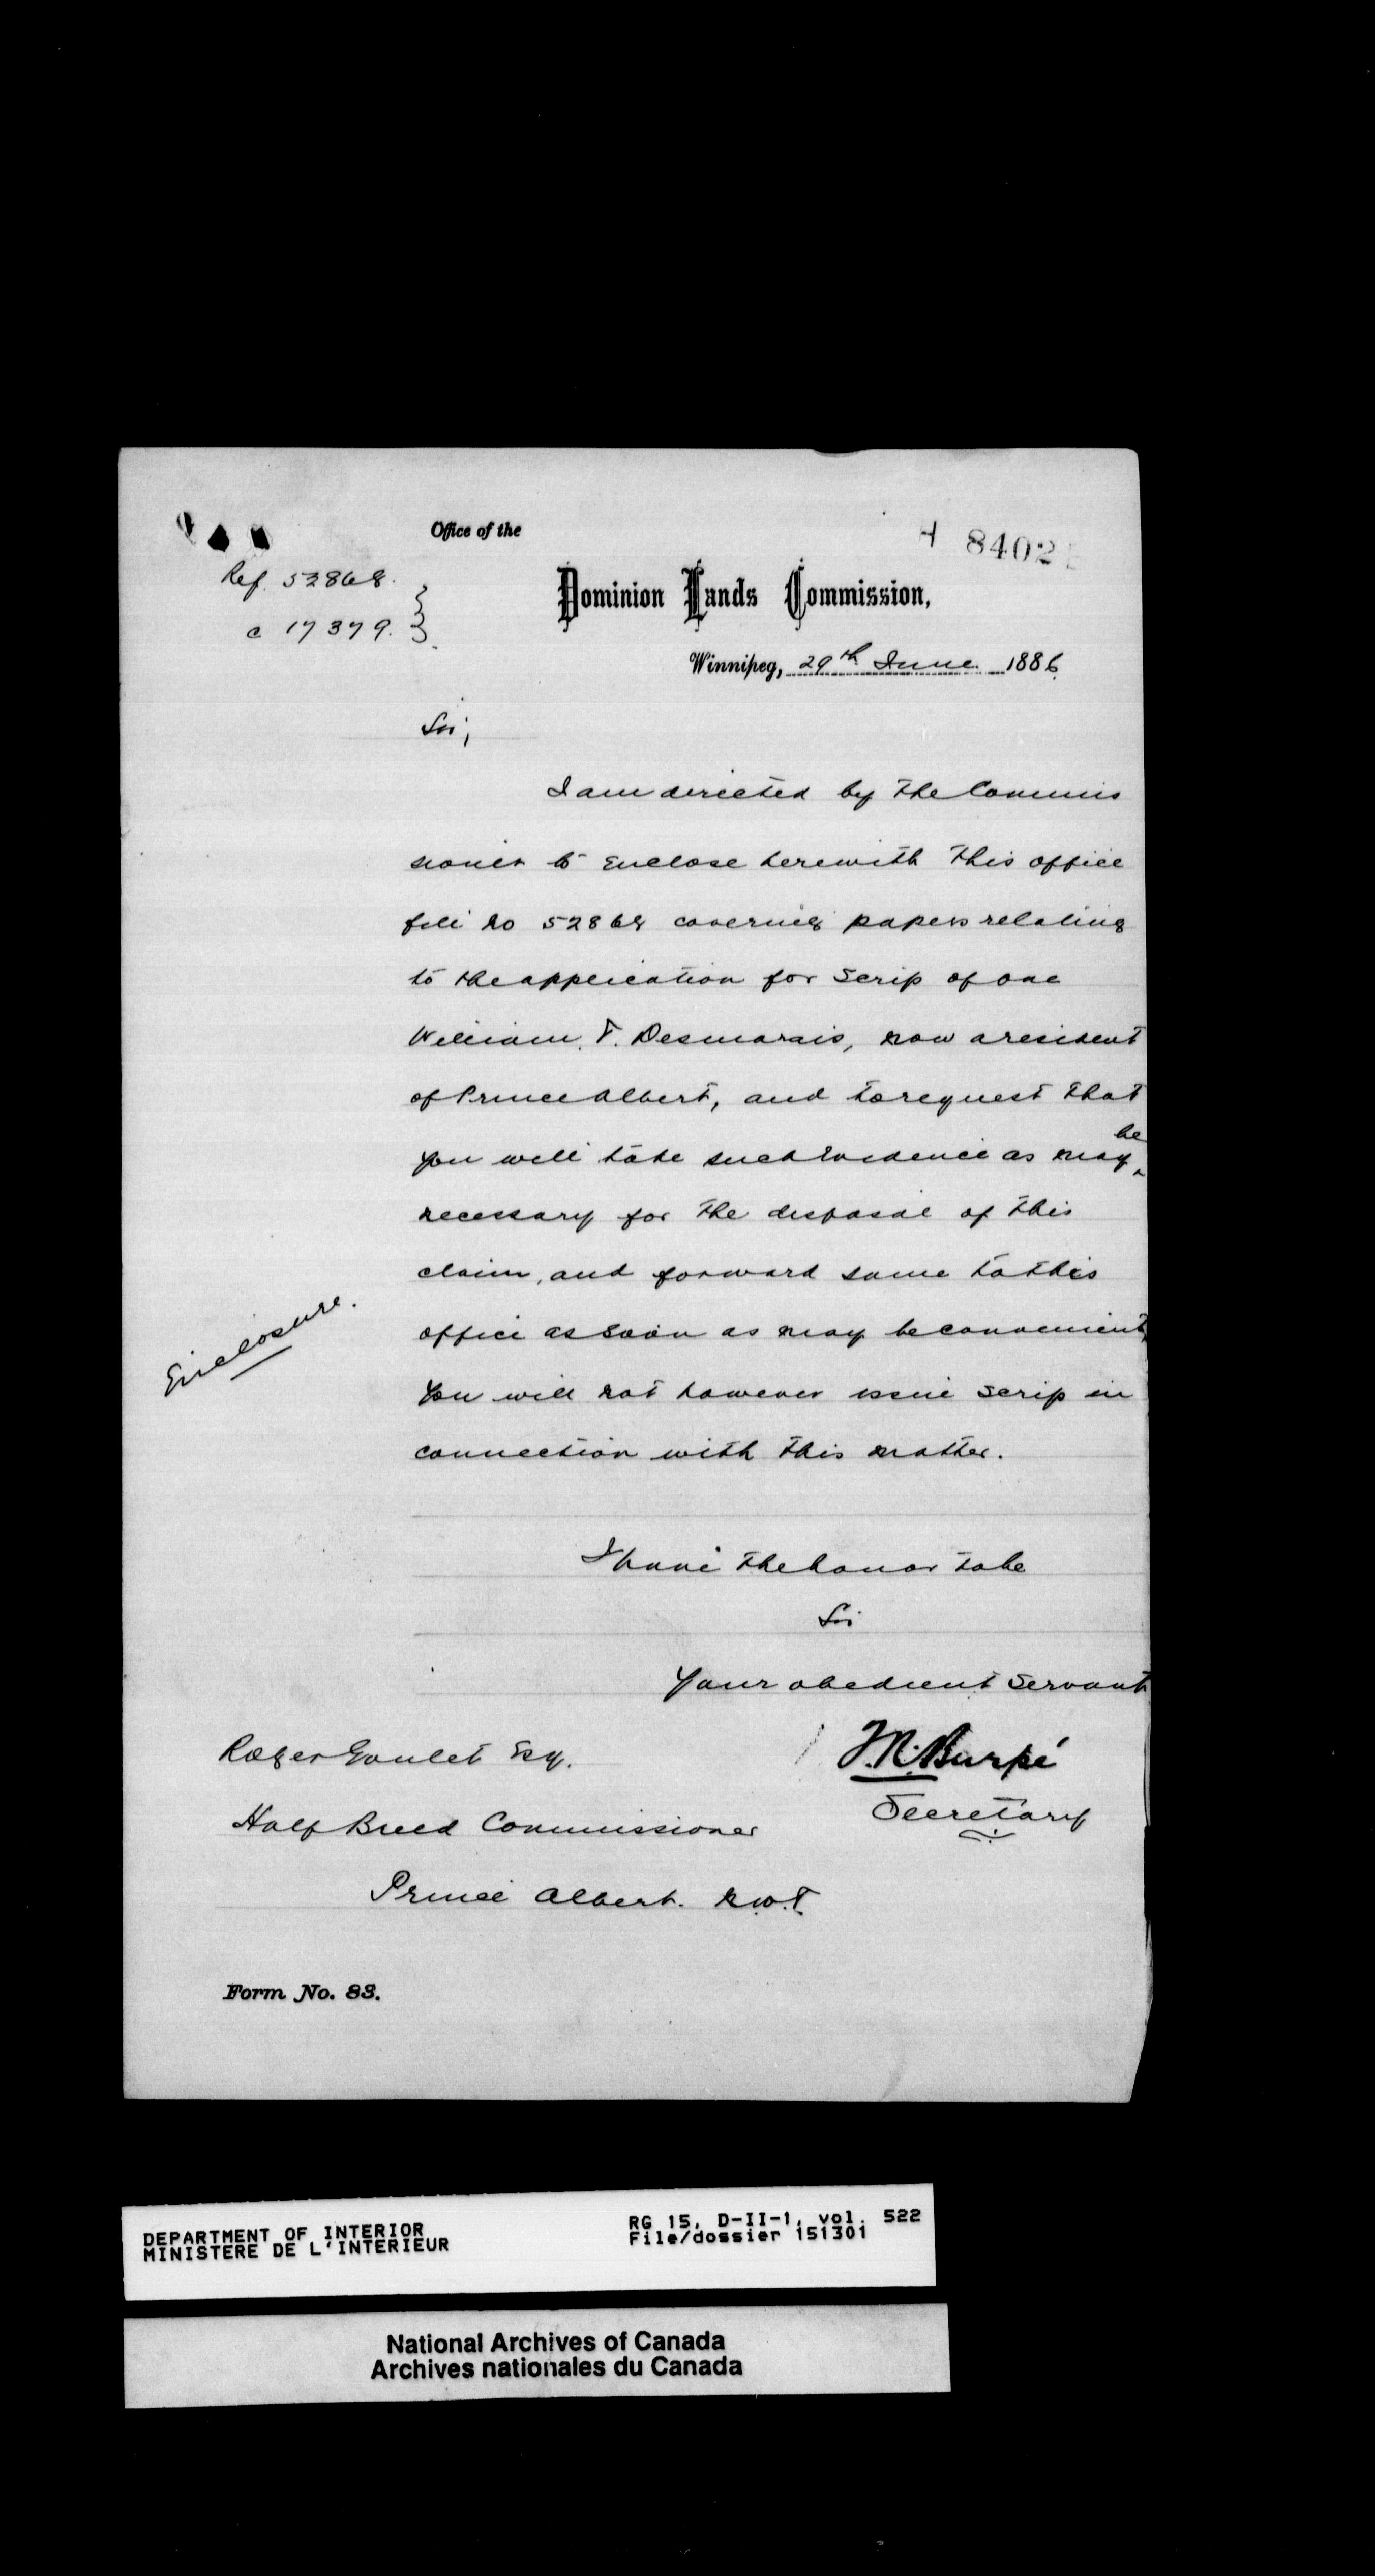 Office of the
8402
Ref. 52868.
c 17379.
Dominion Lands Commission,
Winnipeg, 29th June 1886
Sir,
I am directed by the Commis
sioner to enclose herewith this office
file No 52868 covering papers relating
to the application for scrip of one
William. T. Desmarais, now a resident
of Prince Albert, and to request that
you will take such evidence as may be
necessary for the disposal of this
claim, and forward same to this
Enclosure.
office as soon as may be convenient,
You will not however issue scrip in
connection with this matter.
I have the honor to be
Sir
Your obedient Servant
Roger Goulet Esq.
Half Breed Commissioner
Prince Albert. N.W.T.
Burpé
Secretary
Form No. 83.
DEPARTMENT OF INTERIOR
MINISTERE DE L'INTERIEUR
RG 15, D-II-1, vol. 522
File/dossier 151301
National Archives of Canada
Archives nationales du Canada